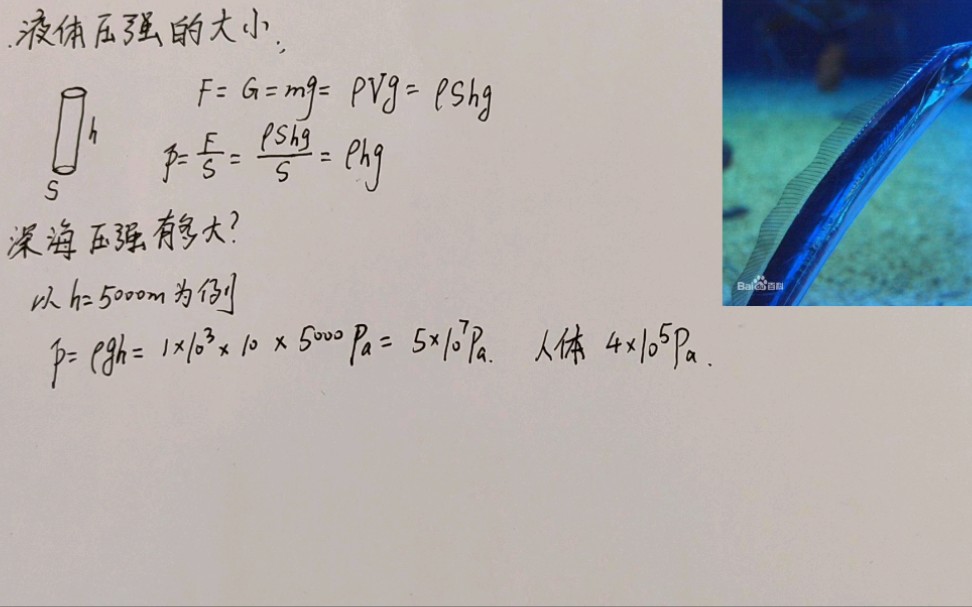 液体压强的大小.
h
S
F = G = mg = ρVg = ρShg
p = F/S = ρShg/S = ρhg
深海压强有多大?
以 h=5000m 为例
p = ρgh = 1×10³×10×5000 Pa = 5×10⁷Pa. 人体 4×10⁵Pa.
Bai百科